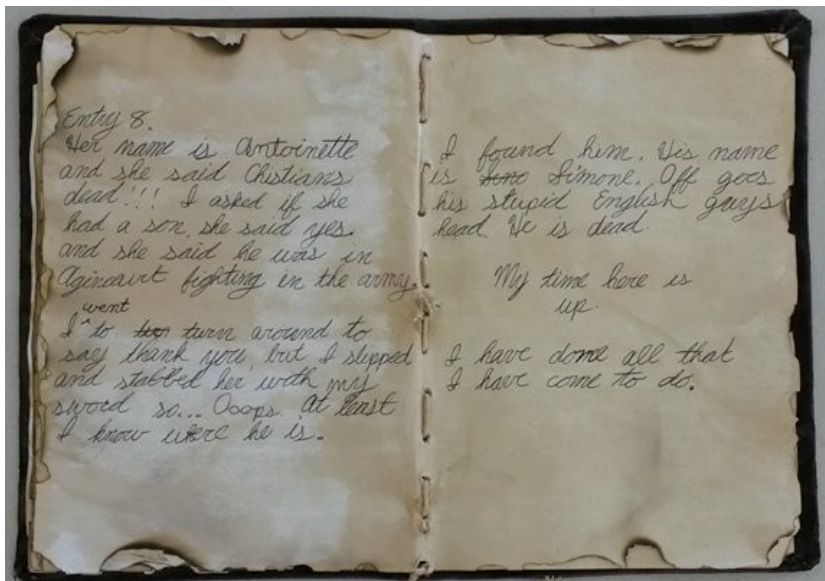 Entry 8.
Her name is Antoinette
and she said Chistians
dead!!! I asked if she
had a son, she said yes.
and she said he was in
Agincourt fighting in the army.
went
I to turn around to
say thank you, but I slipped
and stabbed her with my
sword so... Ooops. At least
I know where he is.
I found him. His name
is Simone. Off goes
his stupid English guys
head. He is dead.
My time here is
up.
I have done all that
I have come to do.